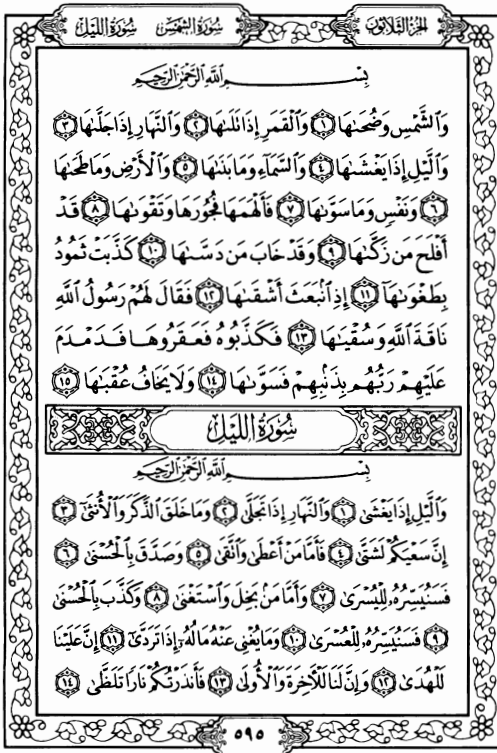 سُورَةُ اللَّيْلِ سُورَةُ الشَّمْسِ الجُزْءُ الثَّلَاثُونَ
بِسْمِ اللَّهِ الرَّحْمَٰنِ الرَّحِيمِ
وَالشَّمْسِ وَضُحَىٰهَا ١ وَالْقَمَرِ إِذَا تَلَىٰهَا ٢ وَالنَّهَارِ إِذَا جَلَّىٰهَا ٣
وَالَّيْلِ إِذَا يَغْشَىٰهَا ٤ وَالسَّمَاءِ وَمَا بَنَىٰهَا ٥ وَالْأَرْضِ وَمَا طَحَىٰهَا
٦ وَنَفْسٍ وَمَا سَوَّىٰهَا ٧ فَأَلْهَمَهَا فُجُورَهَا وَتَقْوَىٰهَا ٨ قَدْ
أَفْلَحَ مَن زَكَّىٰهَا ٩ وَقَدْ خَابَ مَن دَسَّىٰهَا ١٠ كَذَّبَتْ ثَمُودُ
بِطَغْوَىٰهَا ١١ إِذِ انبَعَثَ أَشْقَىٰهَا ١٢ فَقَالَ لَهُمْ رَسُولُ اللَّهِ
نَاقَةَ اللَّهِ وَسُقْيَٰهَا ١٣ فَكَذَّبُوهُ فَعَقَرُوهَا فَدَمْدَمَ
عَلَيْهِمْ رَبُّهُم بِذَنبِهِمْ فَسَوَّىٰهَا ١٤ وَلَا يَخَافُ عُقْبَٰهَا ١٥
سُورَةُ اللَّيْلِ
بِسْمِ اللَّهِ الرَّحْمَٰنِ الرَّحِيمِ
وَالَّيْلِ إِذَا يَغْشَىٰ ١ وَالنَّهَارِ إِذَا تَجَلَّىٰ ٢ وَمَا خَلَقَ الذَّكَرَ وَالْأُنثَىٰ ٣
إِنَّ سَعْيَكُمْ لَشَتَّىٰ ٤ فَأَمَّا مَنْ أَعْطَىٰ وَاتَّقَىٰ ٥ وَصَدَّقَ بِالْحُسْنَىٰ ٦
فَسَنُيَسِّرُهُ لِلْيُسْرَىٰ ٧ وَأَمَّا مَن بَخِلَ وَاسْتَغْنَىٰ ٨ وَكَذَّبَ بِالْحُسْنَىٰ
٩ فَسَنُيَسِّرُهُ لِلْعُسْرَىٰ ١٠ وَمَا يُغْنِي عَنْهُ مَالُهُ إِذَا تَرَدَّىٰ ١١ إِنَّ عَلَيْنَا
لَلْهُدَىٰ ١٢ وَإِنَّ لَنَا لَلْآخِرَةَ وَالْأُولَىٰ ١٣ فَأَنذَرْتُكُمْ نَارًا تَلَظَّىٰ ١٤
٥٩٥